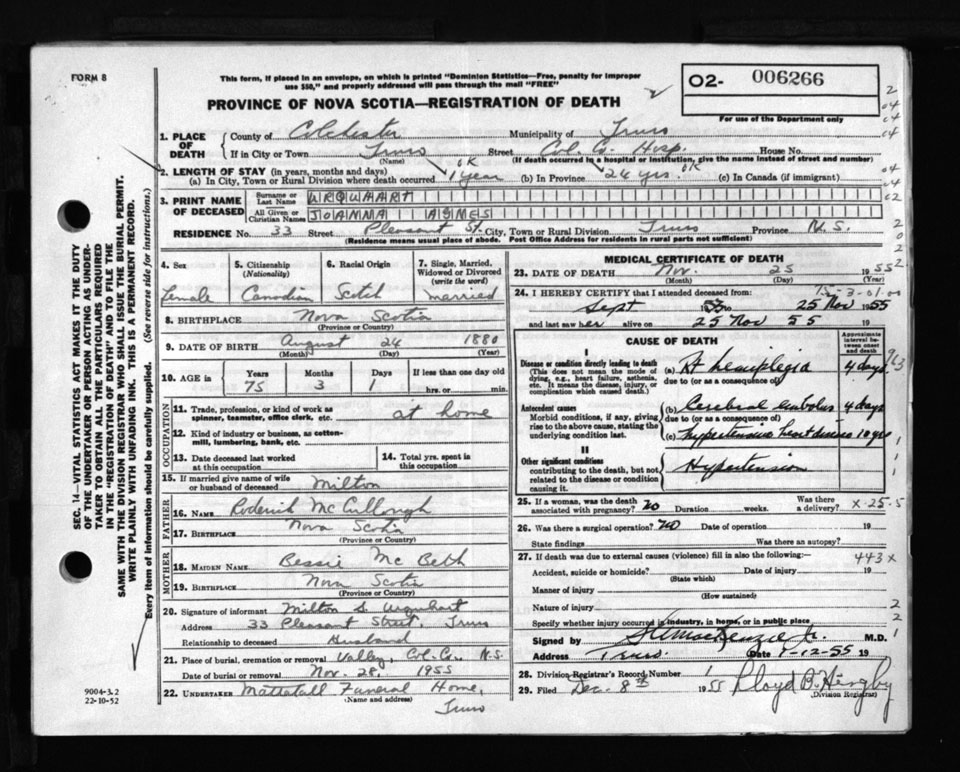 FORM 8
This form, if placed in an envelope, on which is printed "Dominion Statistics—Free, penalty for improper
use $50," and properly addressed will pass through the mail "FREE"
PROVINCE OF NOVA SCOTIA—REGISTRATION OF DEATH
O2- 006266
For use of the Department only
1. PLACE OF DEATH
County of Colchester Municipality of Truro
If in City or Town Truro Street Col. Co. Hosp. House No.
(Name) (If death occurred in a hospital or institution, give the name instead of street and number)
2. LENGTH OF STAY (in years, months and days) OK OK
(a) In City, Town or Rural Division where death occurred 1 year (b) In Province 26 yrs. (c) In Canada (if immigrant)
3. PRINT NAME OF DECEASED
Surname or Last Name URQUHART
All Given or Christian Names JOANNA AGNES
RESIDENCE No. 33 Street Pleasant St. City, Town or Rural Division Truro Province N.S.
(Residence means usual place of abode. Post Office Address for residents in rural parts not sufficient)
4. Sex Female
5. Citizenship (Nationality) Canadian
6. Racial Origin Scotch
7. Single, Married, Widowed or Divorced (write the word) married
8. BIRTHPLACE Nova Scotia
(Province or Country)
9. DATE OF BIRTH August 24 1880
(Month) (Day) (Year)
10. AGE in Years 75 Months 3 Days 1 If less than one day old hrs. or min.
OCCUPATION
11. Trade, profession or kind of work as spinner, teamster, office clerk, etc. at home
12. Kind of industry or business, as cotton-mill, lumbering, bank, etc.
13. Date deceased last worked at this occupation
14. Total yrs. spent in this occupation
15. If married give name of wife or husband of deceased Milton
FATHER
16. NAME Roderick McCullough
17. BIRTHPLACE Nova Scotia
(Province or Country)
MOTHER
18. MAIDEN NAME Bessie McBeth
19. BIRTHPLACE Nova Scotia
(Province or Country)
20. Signature of informant Milton S. Urquhart
Address 33 Pleasant Street, Truro
Relationship to deceased Husband
21. Place of burial, cremation or removal Valley, Col. Co. N.S.
Date of burial or removal Nov. 28, 1955
22. UNDERTAKER Mattatall Funeral Home,
(Name and address)
Truro
MEDICAL CERTIFICATE OF DEATH
23. DATE OF DEATH Nov. 25 1955
(Month) (Day)
24. I HEREBY CERTIFY that I attended deceased from:
Sept to 25 Nov 1955
and last saw her alive on 25 Nov 55 19
CAUSE OF DEATH
Approximate interval between onset and death
I
Disease or condition directly leading to death
(This does not mean the mode of dying, e.g., heart failure, asthenia, etc. It means the disease, injury, or complication which caused death.)
(a) Rt hemiplegia 4 days
due to (or as a consequence of)
Antecedent causes
Morbid conditions, if any, giving rise to the above cause, stating the underlying condition last.
(b) Cerebral embolus 4 days
due to (or as a consequence of)
(c) hypertensive heart disease 10 yrs
II
Other significant conditions
contributing to the death, but not related to the disease or condition causing it.
Hypertension
25. If a woman, was the death associated with pregnancy? No Duration weeks. Was there a delivery?
x-25-5
26. Was there a surgical operation? No Date of operation 19
State findings Was there an autopsy?
27. If death was due to external causes (violence) fill in also the following:—
443 x
Accident, suicide or homicide? Date of injury 19
(State which)
Manner of injury
(How sustained)
Nature of injury
Specify whether injury occurred in industry, in home, or in public place
Signed by MacKenzie Jr. M.D.
Address Truro Date 1-12-55 19
28. Division Registrar's Record Number 1
29. Filed Dec. 8th 1955 Lloyd B.
(Division Registrar)
SEC. 14—VITAL STATISTICS ACT MAKES IT THE DUTY
OF THE UNDERTAKER OR PERSON ACTING AS UNDER-
TAKER TO OBTAIN ALL THE PARTICULARS REQUIRED
IN THE "REGISTRATION OF DEATH" AND TO FILE THE
SAME WITH THE DIVISION REGISTRAR WHO SHALL ISSUE THE BURIAL PERMIT.
WRITE PLAINLY WITH UNFADING INK. THIS IS A PERMANENT RECORD.
Every item of information should be carefully supplied. (See reverse side for instructions.)
9004-3.2
22-10-52